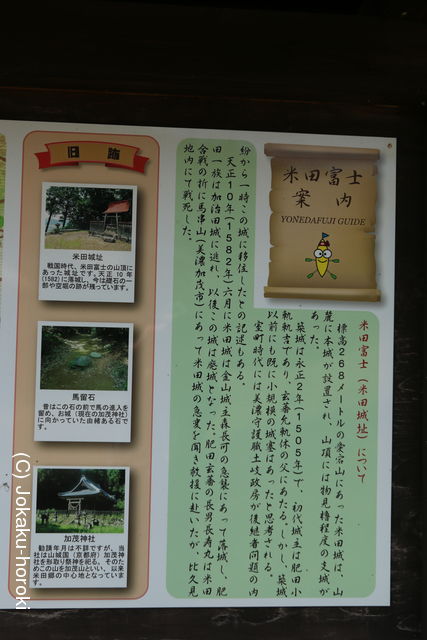 米田富士
案内
YONEDAFUJI GUIDE
米田富士(米田城址)について
標高268メートルの愛宕山にあった米田城は、山
麓に本城が設置され、山頂には物見櫓程度の支城が
あった。
築城は永正2年(1505年)で、初代城主は肥田小
軌軌吉であり、玄蕃允軌休の父にあたる。しかし、築城
以前にも既に小規模の城塞はあったと思考される。
室町時代には美濃守護職土岐政房が後継者問題の内
紛から一時この城に移住したとの記述もある。
天正10年(1582年)六月に米田城は金山城主森長可の急襲にあって落城し、肥
田一族は加治田城に逃れ、以後この城は廃城となった。肥田玄蕃の長男長寿丸は米田
合戦の折に馬串山(美濃加茂市)にあって米田城の急変を聞き救援に赴いたが、比久見
地内にて戦死した。
旧跡
米田城址
戦国時代、米田富士の山頂に
あった城址です。天正10年
(1582)に落城し、今は礎石の一
部や空堀の跡が残っています。
馬留石
昔はこの石の前で馬の進入を
留め、お城(現在の加茂神社)
に向かっていた由緒ある石で
す。
加茂神社
勧請年月は不詳ですが、当
社は山城国(京都府)加茂神
社を形取り祭神を祀る。そのた
めこの山を加茂山といい、以来
米田郷の中心地となっていま
す。
(C) Jokaku-horoki